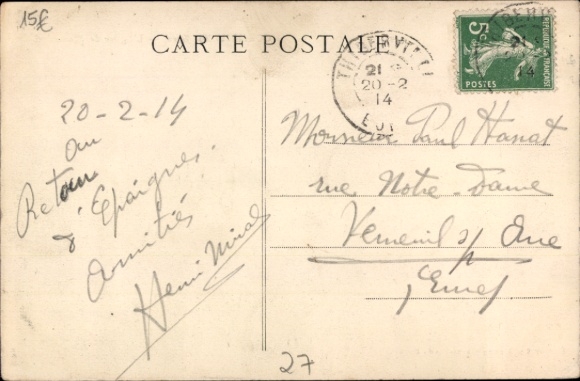 15€
CARTE POSTALE
THIBERVILLE
21
20-2
14
EURE
5c
REPUBLIQUE FRANÇAISE
POSTES
21
14
20-2-14
au
Retour
d'Epaignes.
Amitiés
Henri
Monsieur Paul
rue Notre-Dame
Verneuil s/ Avre
Eure
27